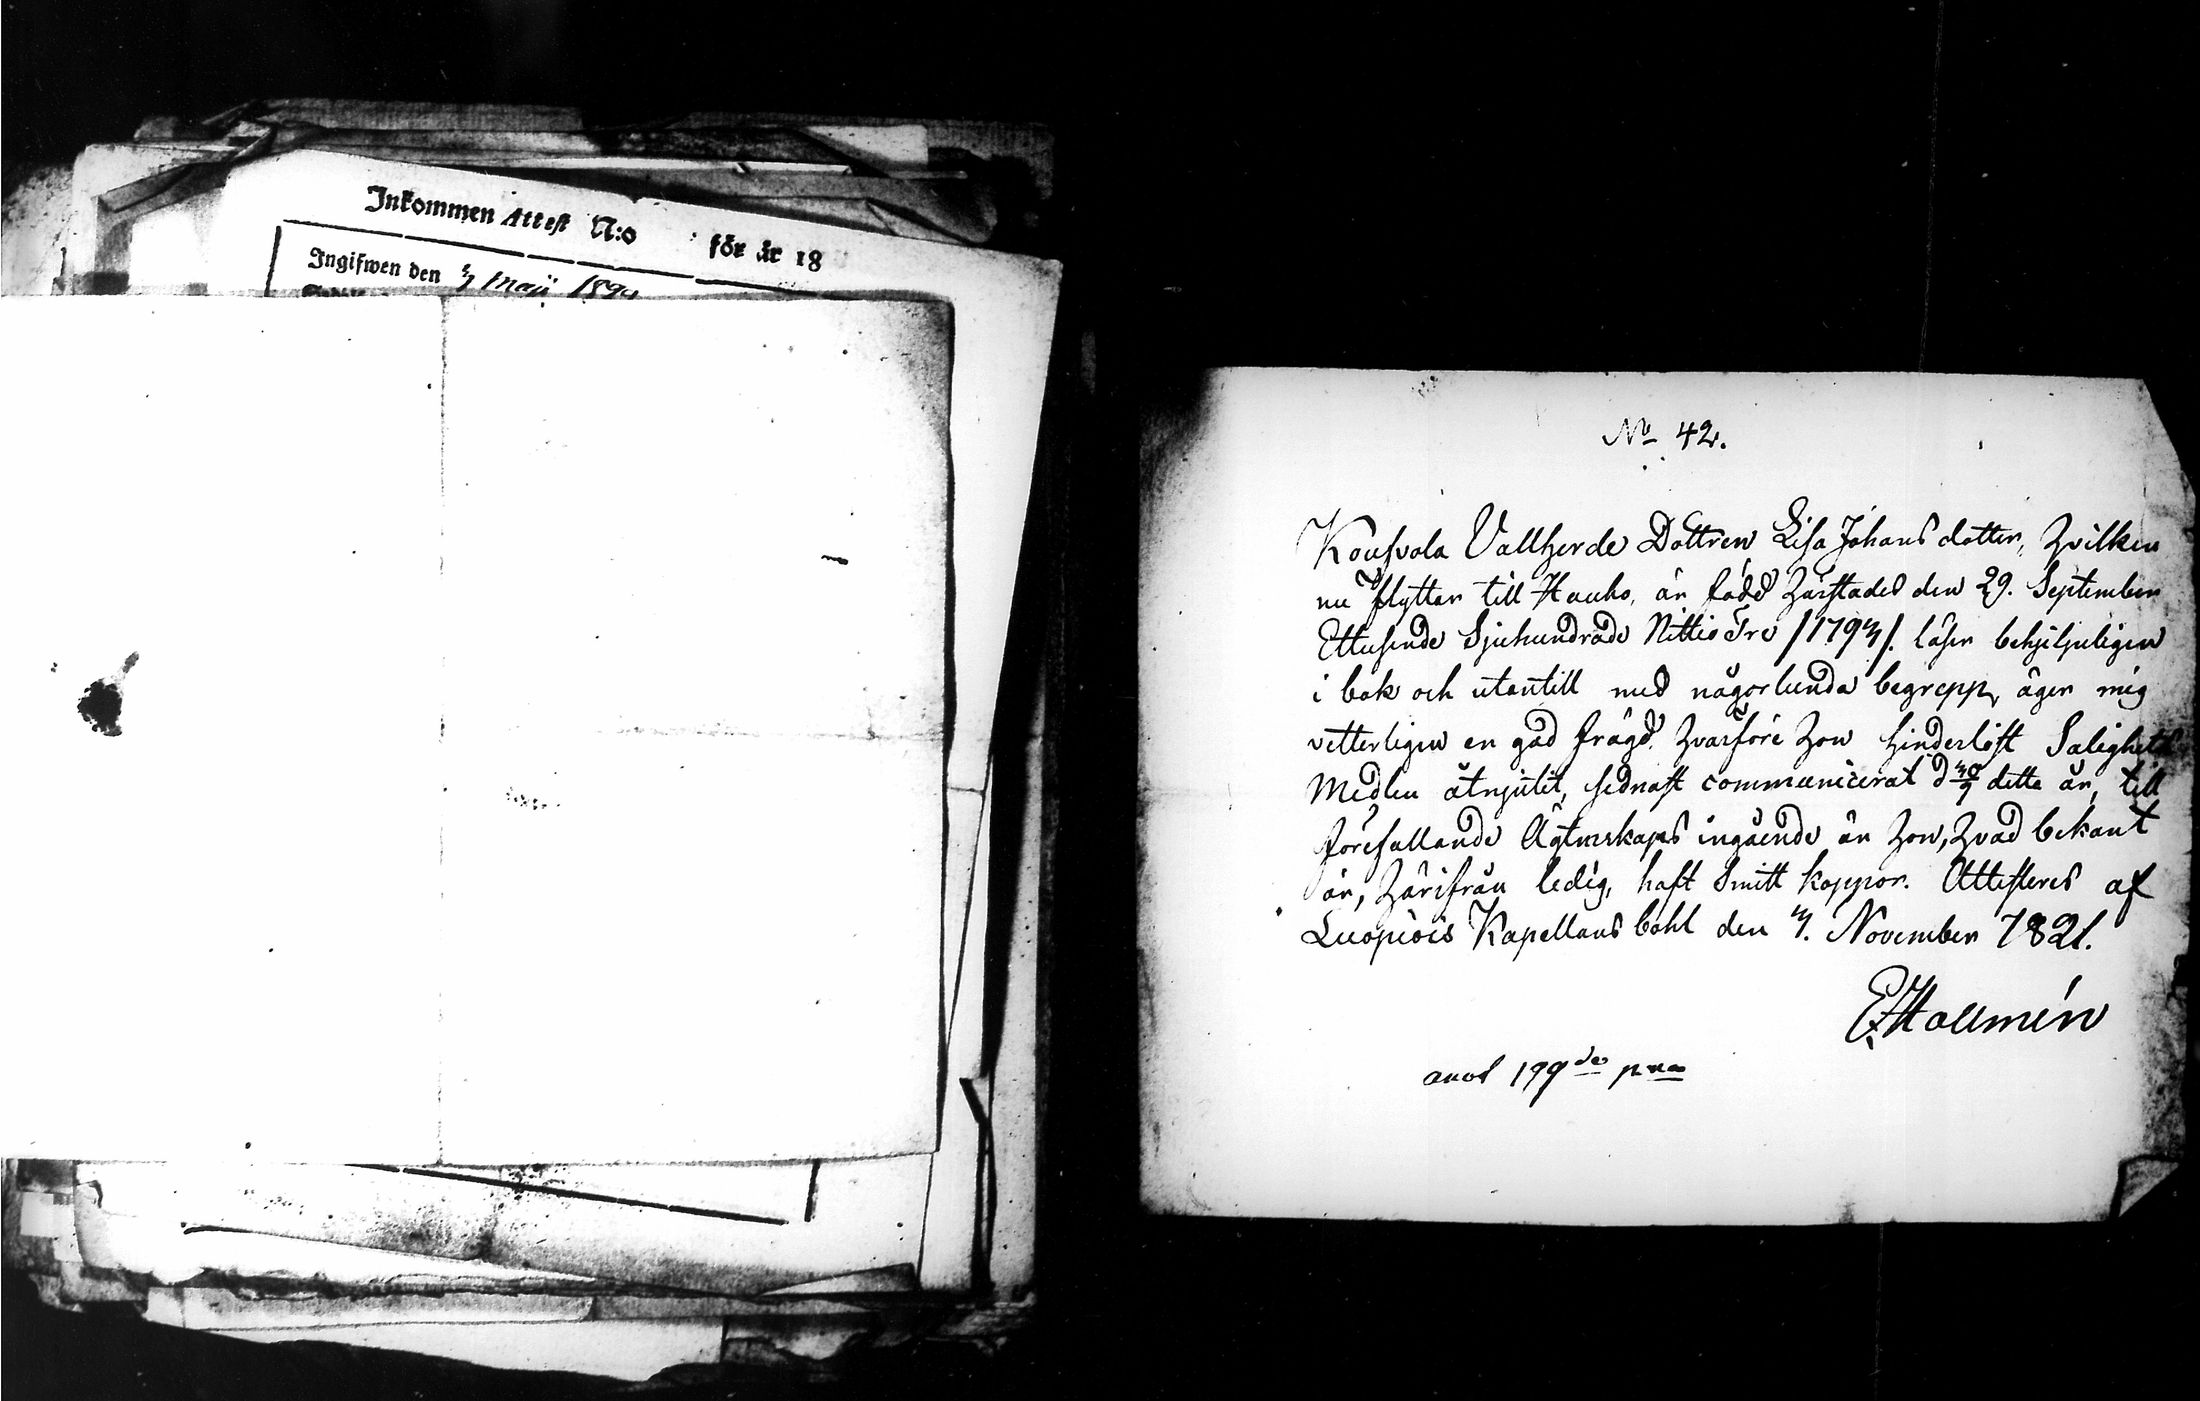 Inkommen Attest N:o för år 18
Ingifwen den 3 Maji 189
No 42.
Kousvola Vallherde Dottren Lisa Johans dotter, hvilken
nu flyttar till Hauho, är född härstades den 29. September
Ettusende Sjuhundrade Nittio Tre /1793/. läser behjelpeligen
i bok och utantill med någorlunda begrepp, äger mig
vetterligen en god frägd. hvarföre hon hinderlöst Salighets
Medlen åtnjutit, sednast communicerat d 30/9 detta år, till
förefallande Ägtenskaps ingående är hon, hvad bekant
är, härifrån ledig, haft Smitt koppor. Attesteres af
Luopiois Kapellans bohl den 3. November 1821.
E. Hollmén
199